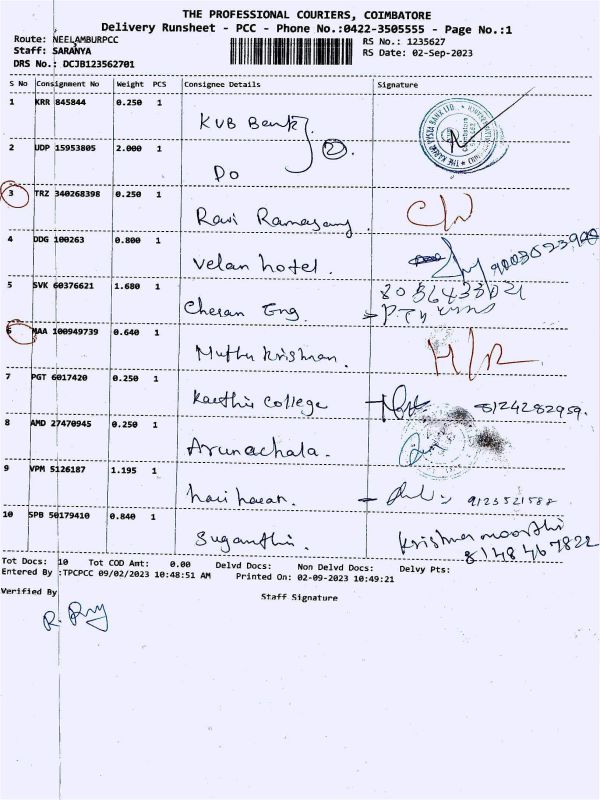 THE PROFESSIONAL COURIERS, COIMBATORE
Delivery Runsheet - PCC - Phone No.:0422-3505555 - Page No.:1
Route: NEELAMBURPCC RS No.: 1235627
Staff: SARANYA RS Date: 02-Sep-2023
DRS No.: DCJB123562701
S No Consignment No Weight PCS Consignee Details Signature
1 KRR 845844 0.250 1 KVB Bank
2 UDP 15953805 2.000 1 Do 2
3 TRZ 340268398 0.250 1 Ravi C/W
4 DDG 100263 0.800 1 Velan hotel.
5 SVK 60376621 1.680 1 Cheran Eng.
6 MAA 100949739 0.640 1 Muthu Krishnan. H/R
7 PGT 6017420 0.250 1 college 8124282959.
8 AMD 27470945 0.250 1 Arunachala.
9 VPM 5126187 1.195 1 hari haran. 9123521588
10 SPB 50179410 0.840 1 Suganthi. Krishnamoorthi
8148467822
Tot Docs: 10 Tot COD Amt: 0.00 Delvd Docs: Non Delvd Docs: Delvy Pts:
Entered By :TPCPCC 09/02/2023 10:48:51 AM Printed On: 02-09-2023 10:49:21
Verified By Staff Signature